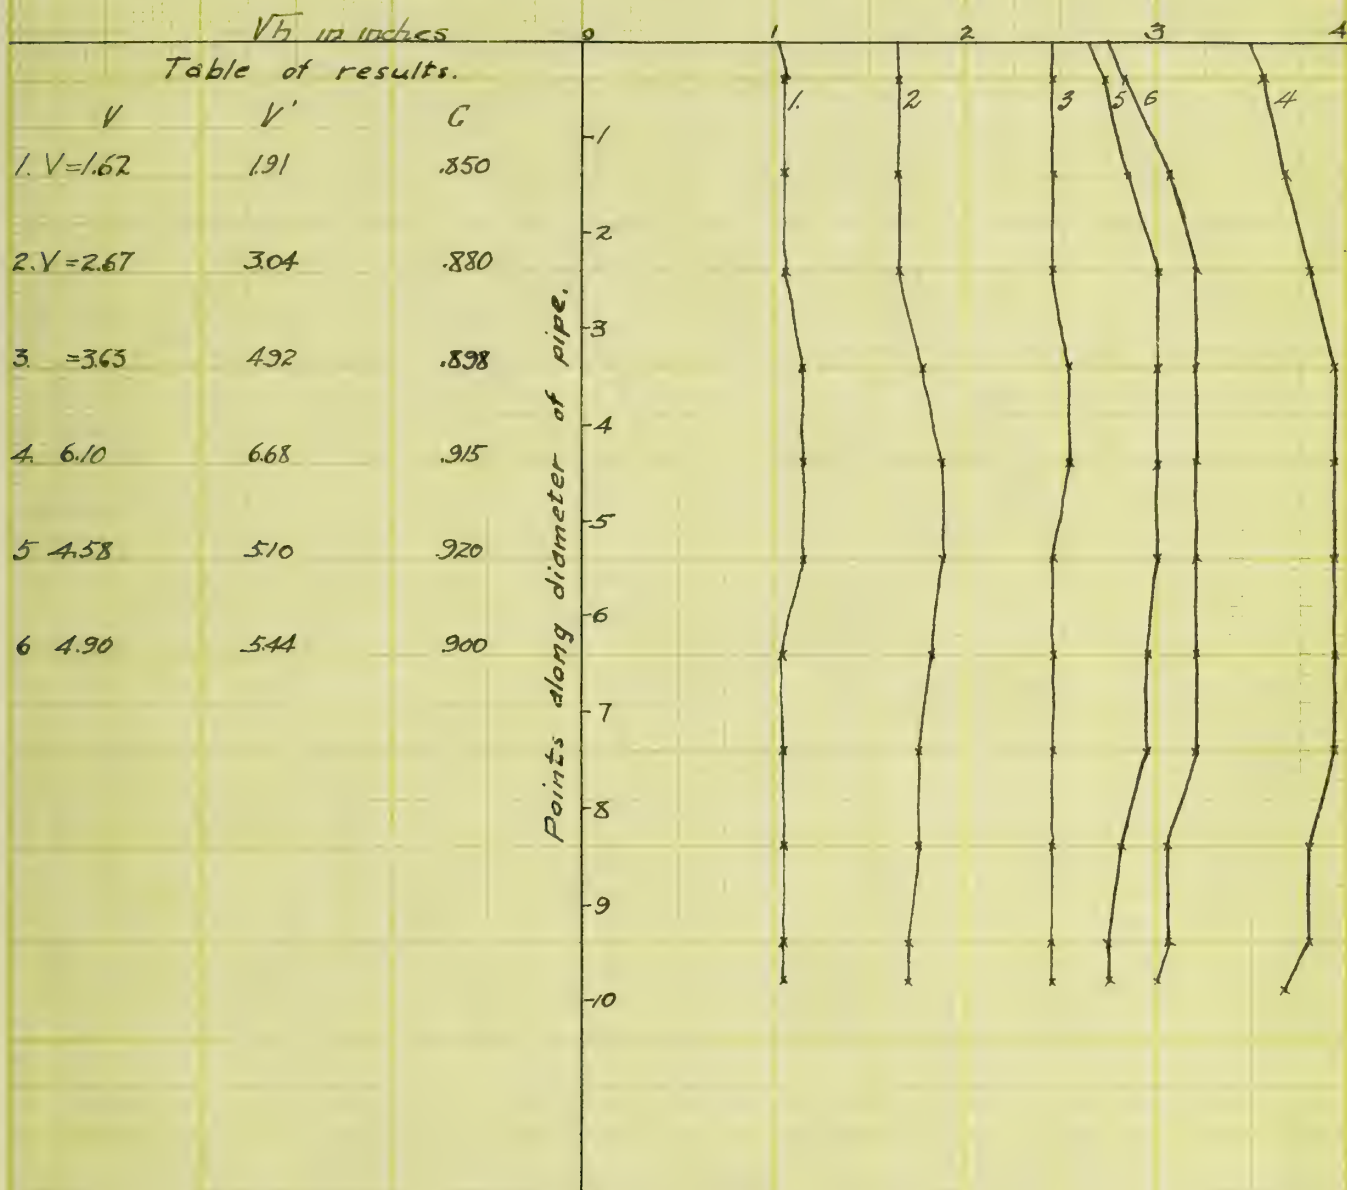 √h in inches
0 1 2 3 4
Table of results.
V V' C
1. V=1.62 1.91 .850
2. V=2.67 3.04 .880
3. =3.63 4.92 .898
4. 6.10 6.68 .915
5 4.58 5.10 .920
6 4.90 5.44 .900
Points along diameter of pipe.
-1
-2
-3
-4
-5
-6
-7
-8
-9
-10
1. 2 3 5 6 4